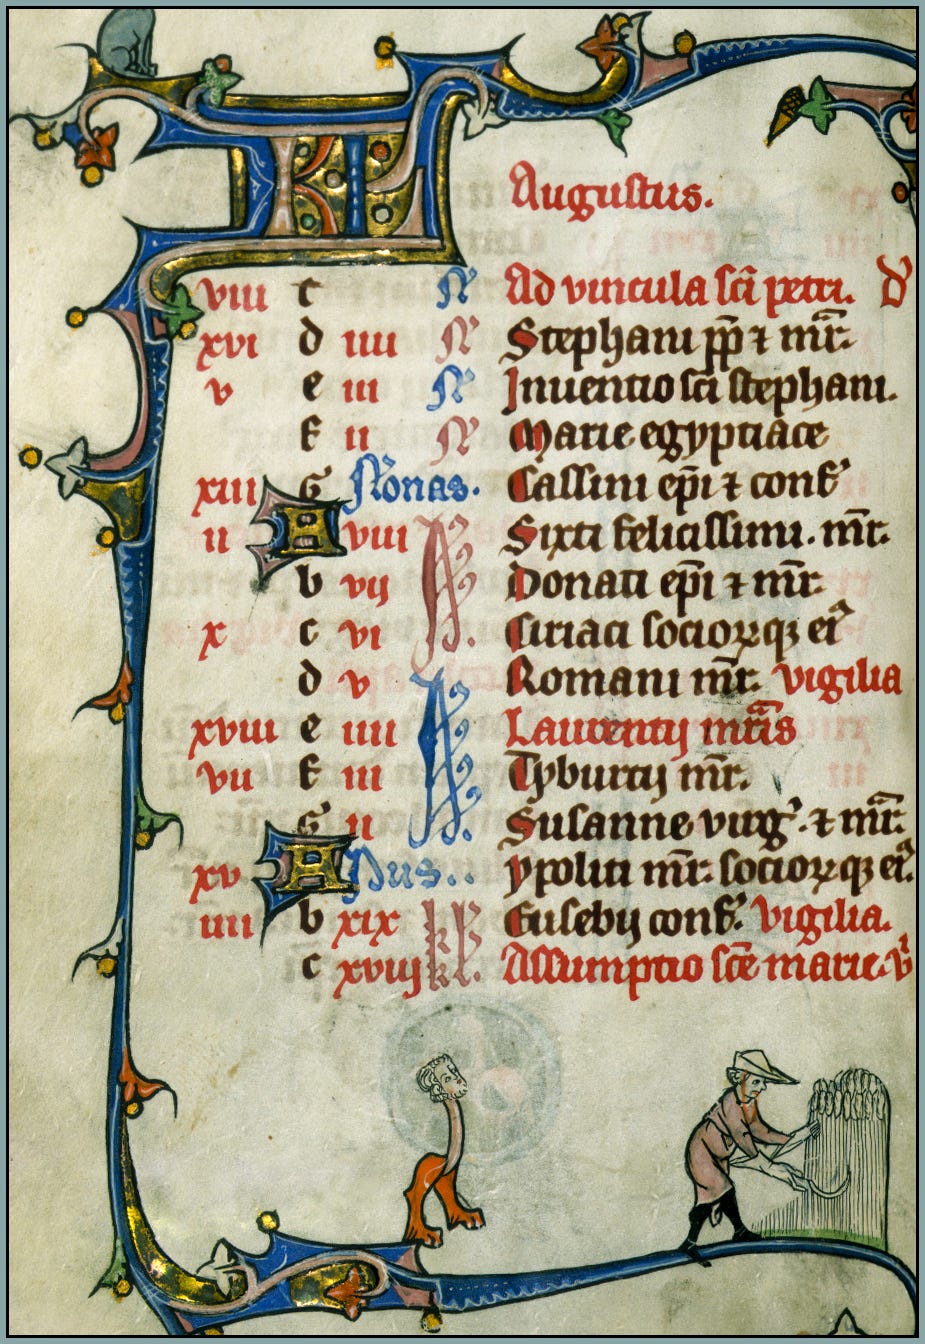 KL Augustus.
viii c N Ad vincula sci petri. D
xvi d iiii N Stephani pp ⁊ mr.
v e iii N Inuentio sci stephani.
f ii N Marie egyptiace
xiii G Nonas. Cassini epi ⁊ conf
ii A viii Sixti felicissimi. mr.
b vii Donati epi ⁊ mr.
x c vi Id. Ciriaci sociorꝝqꝫ ei
d v Romani mr. vigilia
xviii e iiii Laurentij mris
vii f iii Id. Tyburtij mr.
G ii Susanne virg. ⁊ mr.
xv A Idus.. ypoliti mr. sociorꝝqꝫ ei.
iiii b xix kl. Eusebij conf. vigilia.
c xviij Assumptio sce marie.